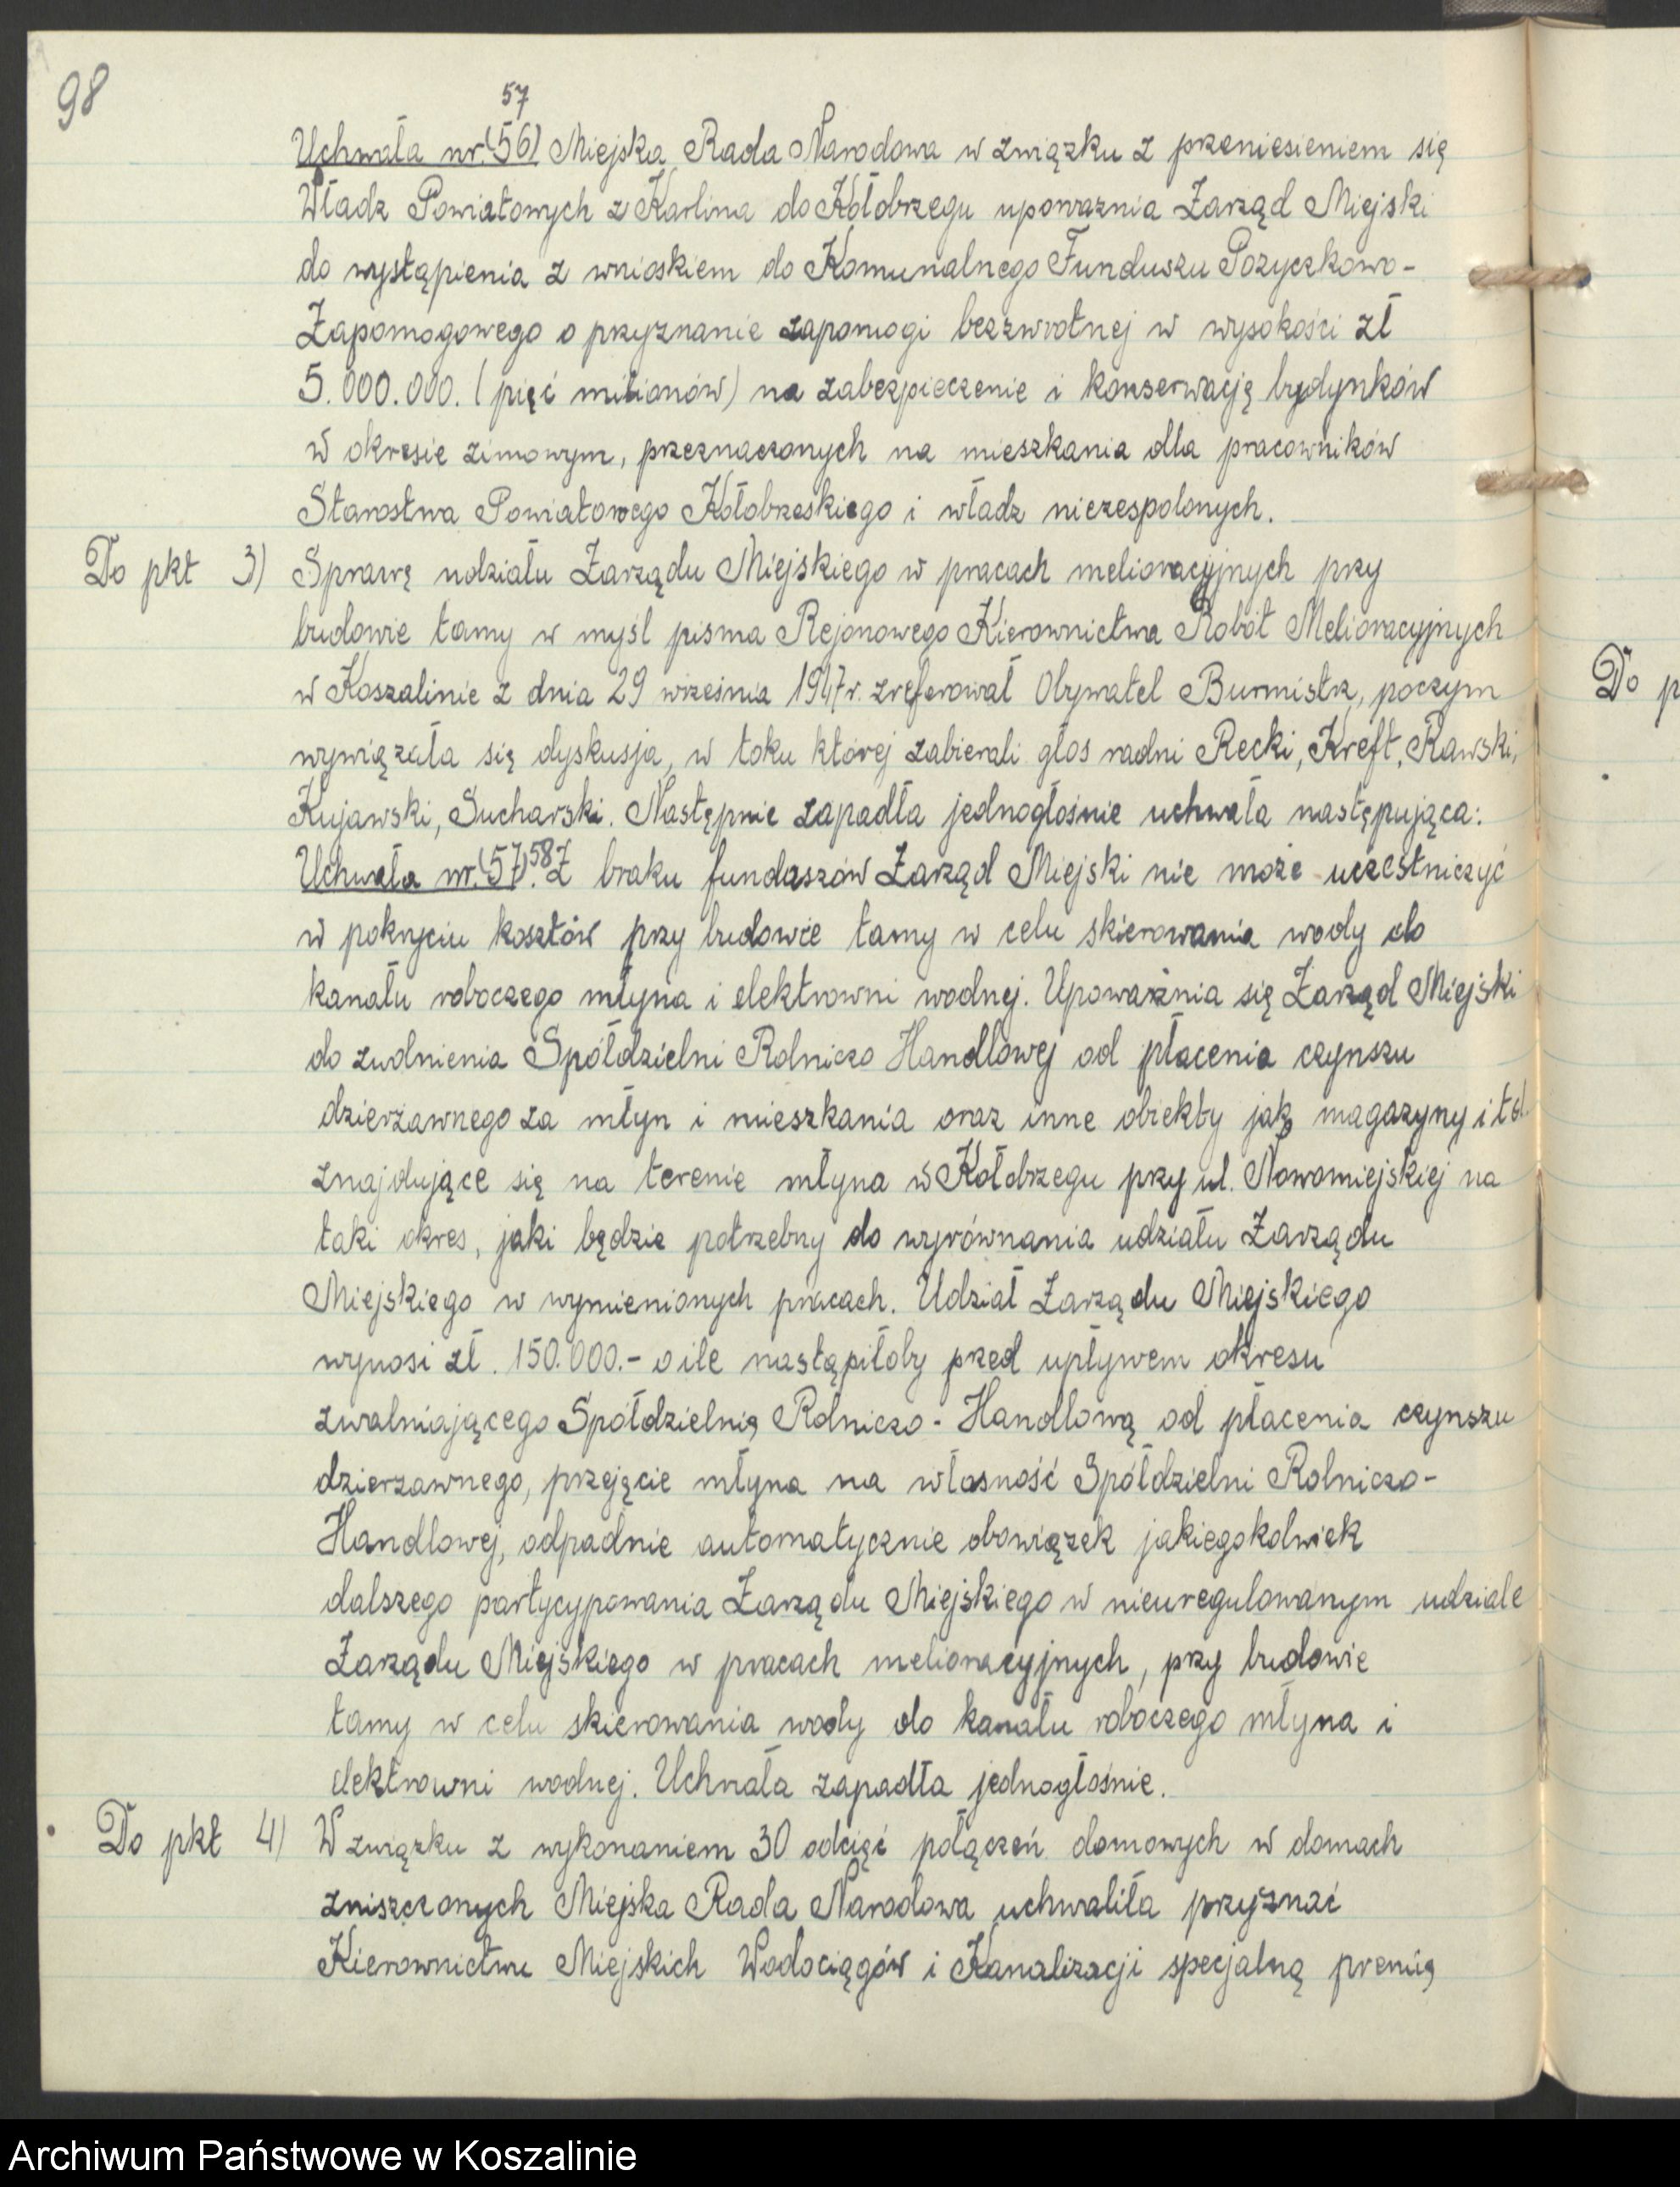 98
57
Uchwała nr. (56) Miejska Rada Narodowa w związku z przeniesieniem się
Władz Powiatowych z Karlina do Kołobrzegu upoważnia Zarząd Miejski
do wystąpienia z wnioskiem do Komunalnego Funduszu Pożyczkowo-
Zapomogowego o przyznanie zapomogi bezzwrotnej w wysokości zł
5.000.000. (pięć milionów) na zabezpieczenie i konserwację budynków
w okresie zimowym, przeznaczonych na mieszkania dla pracowników
Starostwa Powiatowego Kołobrzeskiego i władz niezespolonych.
Do pkt 3) Sprawę udziału Zarządu Miejskiego w pracach melioracyjnych przy
budowie tamy w myśl pisma Rejonowego Kierownictwa Robót Melioracyjnych
w Koszalinie z dnia 29 września 1947r. zreferował Obywatel Burmistrz, poczym
wywiązała się dyskusja, w toku której zabierali głos radni Recki, Kreft, Rawski,
Kujawski, Sucharski. Następnie zapadła jednogłośnie uchwała następująca:
Uchwała nr. (57). 58 Z braku funduszów Zarząd Miejski nie może uczestniczyć
w pokryciu kosztów przy budowie tamy w celu skierowania wody do
kanału roboczego młyna i elektrowni wodnej. Upoważnia się Zarząd Miejski
do zwolnienia Spółdzielni Rolniczo Handlowej od płacenia czynszu
dzierżawnego za młyn i mieszkania oraz inne obiekty jak magazyny itd.
znajdujące się na terenie młyna w Kołobrzegu przy ul. Nowomiejskiej na
taki okres, jaki będzie potrzebny do wyrównania udziału Zarządu
Miejskiego w wymienionych pracach. Udział Zarządu Miejskiego
wynosi zł. 150.000.- o ile nastąpiłoby przed upływem okresu
zwalniającego Spółdzielnię Rolniczo-Handlową od płacenia czynszu
dzierzawnego, przejęcie młyna na własność Spółdzielni Rolniczo-
Handlowej, odpadnie automatycznie obowiązek jakiegokolwiek
dalszego partycypowania Zarządu Miejskiego w nieuregulowanym udziale
Zarządu Miejskiego w pracach melioracyjnych, przy budowie
tamy w celu skierowania wody do kanału roboczego młyna i
elektrowni wodnej. Uchwała zapadła jednogłośnie.
Do pkt 4) W związku z wykonaniem 30 odcięć połączeń domowych w domach
zniszczonych Miejska Rada Narodowa uchwaliła przyznać
Kierownictwu Miejskich Wodociągów i Kanalizacji specjalną premię
Do p
Archiwum Państwowe w Koszalinie